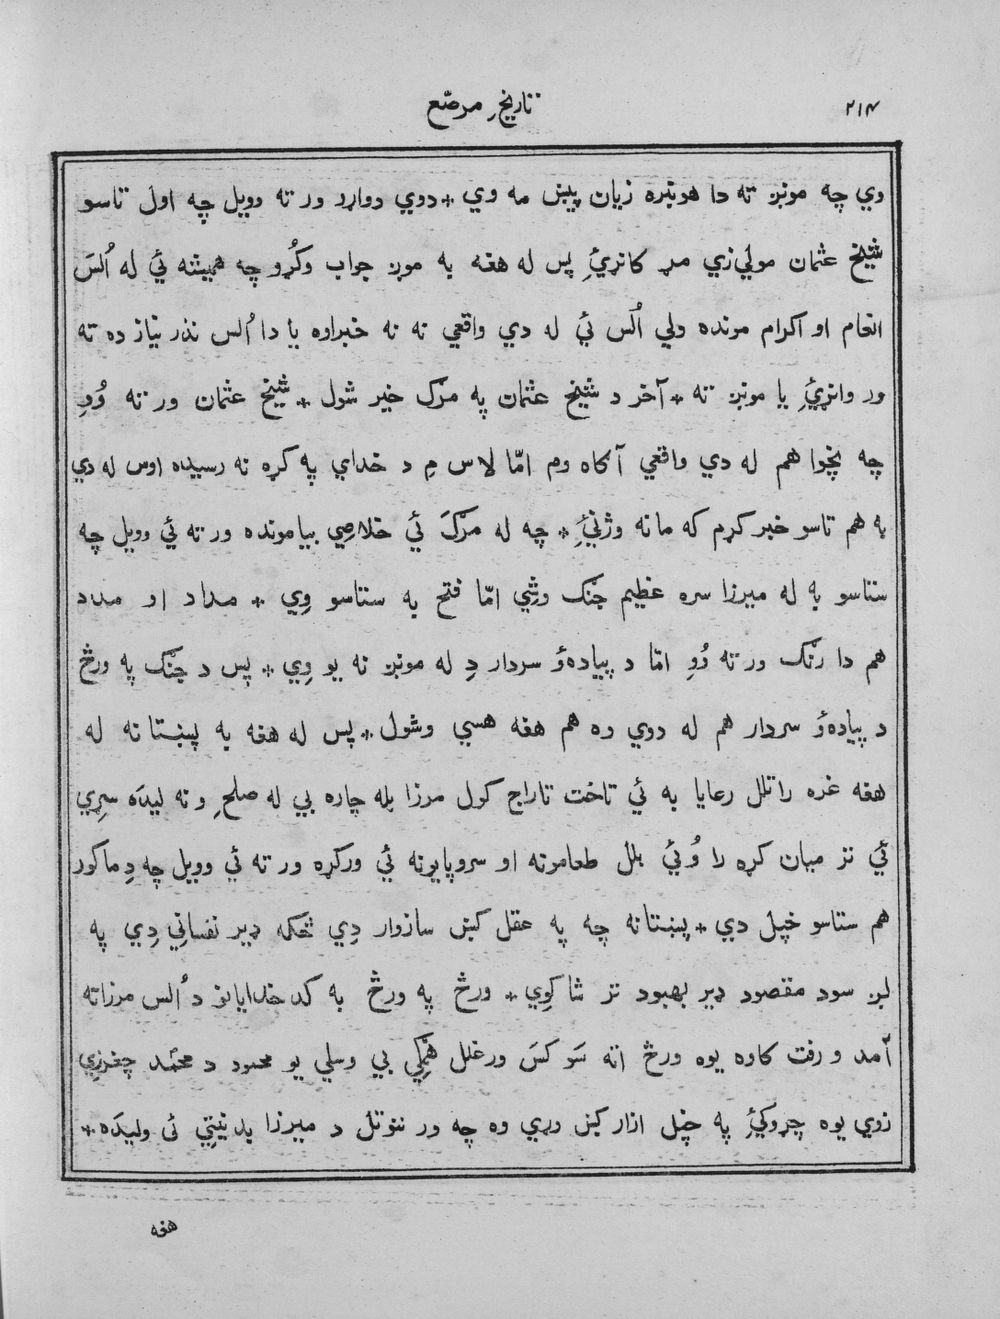 ۲۱۴ تاریخِ مرصّع
وي چه مونږ ته دا هونبره زیان پیښ مه وي * دوي دواړو ورته وویل چه اول تاسو
شیخ عثمان مولي‌زي مړ کانړئِ پس له هغه به موږ جواب وکُړو چه همیشه ئي له اُلسَ
انعام او اکرام مونده ولي اُلَس ئي له دي واقعي نه نه خبراوه یا دا اُلس نذر نیاز ده ته
ور وانړئِ یا مونږ ته * آخر د شیخ عثمان په مرک خیر شول * شیخ عثمان ورته وُوِ
چه پخوا هم له دي واقعي آکاه وم امّا لاس مِ د خداي په کړه نه رسیده اوس له دي
به هم تاسو خبر کړم که ما نه وژنئِ * چه له مرکَ ئي خلاصِي بیامونده ورته ئي وویل چه
ستاسو به له میرزا سره عظیم جنک وشي امّا فتح به ستاسو وِي * مداد او مدد
هم دا رنک ورته وُوِ امّا د پیاده‌ؤ سردار دِ له مونږ نه یو وِي * پس د جنک په ورځ
د پیاده‌ؤ سردار هم له دوي وه هم هغه هسي وشول * پس له هغه به پښتانه له
هغه غره راتلل رعایا به ئي تاخت تاراج کول مرزا بله چاره بي له صلحِ و نه لیدَه سړي
ئي تر میان کړه را وُئي بلل طعامونه او سروپایونه ئي ورکړه ورته ئي وویل چه دِ ما کور
هم ستاسو خپل دي * پښتانه چه په عقل کښ سازوار دِي څکه ډیر نفساني دِي په
لږ سود مقصود ډیر بهبود تر شا کوِي * ورځ په ورځ به کدخدایانو د اُلس مرزاته
آمد و رفت کاوه یوه ورځ اته سَو کسَ ورغلل همکي بي وسلي یو محمود د محمّد چغرزِي
زوي یوه چړوکئِ په خپل ازار کښ وړي وه چه ور ننوتل د میرزا بدنیتِي ئی ولیدَه *
هغه